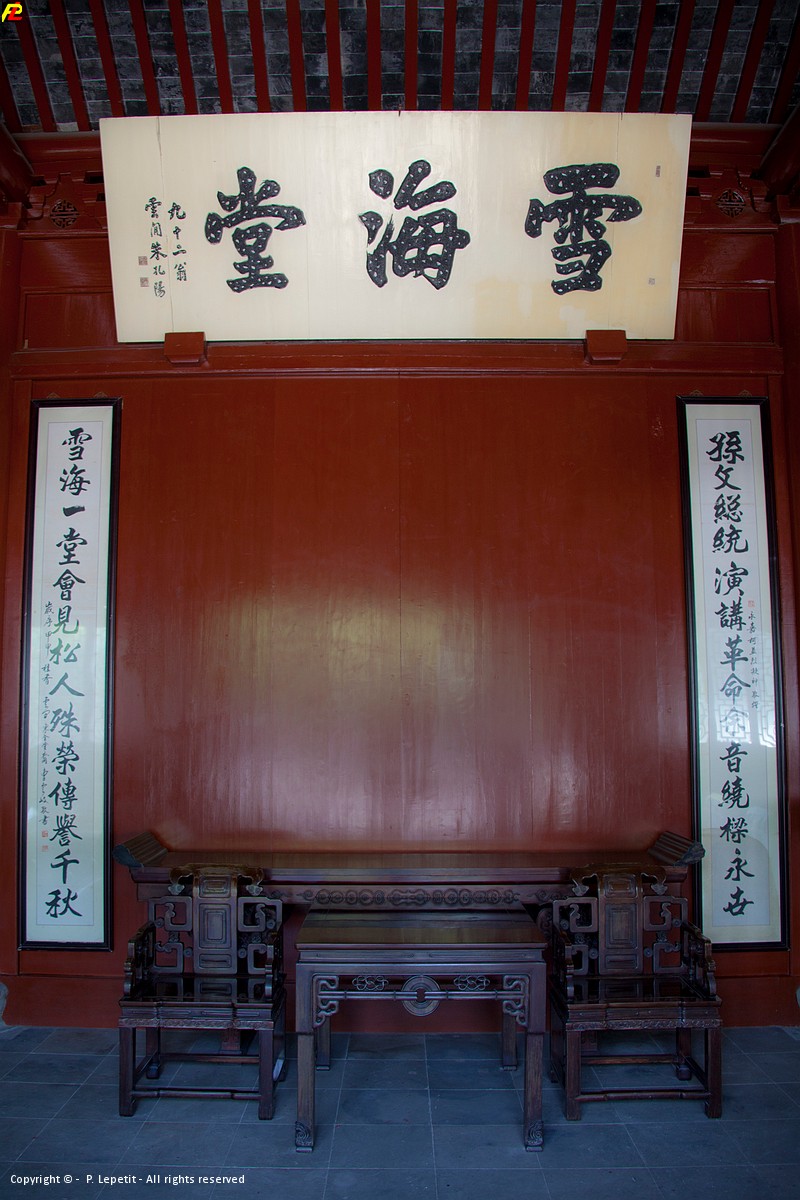 雪海堂
九十二翁
雲間朱孔陽
孫文総統演講革命余音繞樑永世
雪海一堂會見松人殊榮傳譽千秋
Copyright © - P. Lepetit - All rights reserved